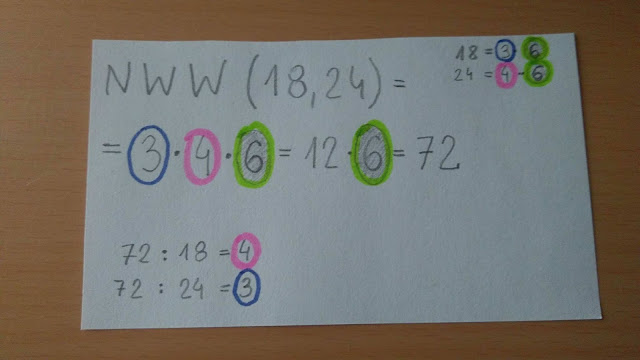 NWW (18,24) =
18 = 3 6
24 = 4 · 6
= 3 · 4 · 6 = 12 · 6 = 72
72 : 18 = 4
72 : 24 = 3